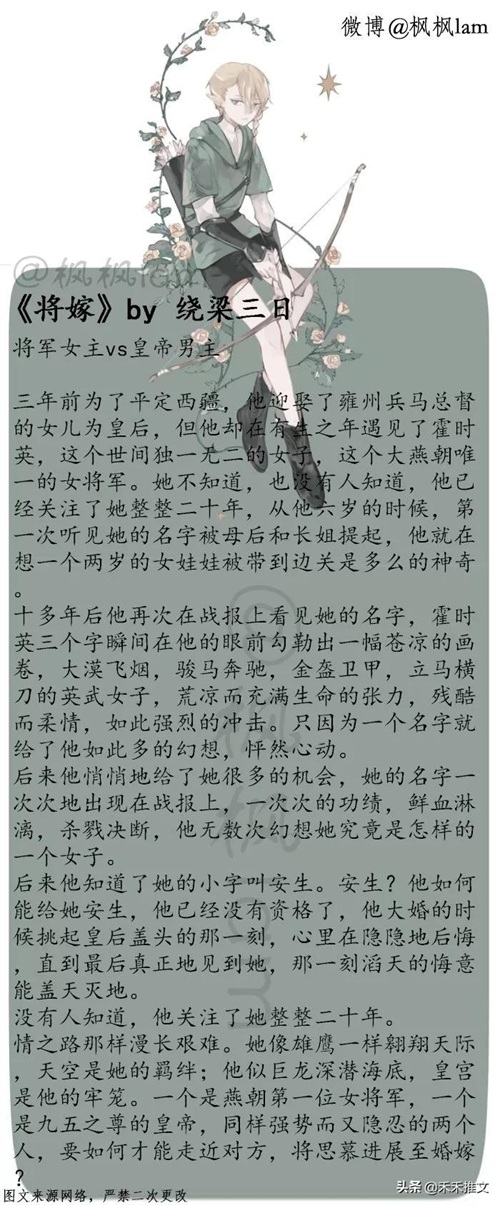 微博@枫枫lam
@枫枫lam
《将嫁》by 绕梁三日
将军女主vs皇帝男主
三年前为了平定西疆，他迎娶了雍州兵马总督
的女儿为皇后，但他却在有生之年遇见了霍时
英，这个世间独一无二的女子，这个大燕朝唯
一的女将军。她不知道，也没有人知道，他已
经关注了她整整二十年，从他六岁的时候，第
一次听见她的名字被母后和长姐提起，他就在
想一个两岁的女娃娃被带到边关是多么的神奇
。
十多年后他再次在战报上看见她的名字，霍时
英三个字瞬间在他的眼前勾勒出一幅苍凉的画
卷，大漠飞烟，骏马奔驰，金盔卫甲，立马横
刀的英武女子，荒凉而充满生命的张力，残酷
而柔情，如此强烈的冲击。只因为一个名字就
给了他如此多的幻想，怦然心动。
后来他悄悄地给了她很多的机会，她的名字一
次次地出现在战报上，一次次的功绩，鲜血淋
漓，杀戮决断，他无数次幻想她究竟是怎样的
一个女子。
后来他知道了她的小字叫安生。安生？他如何
能给她安生，他已经没有资格了，他大婚的时
候挑起皇后盖头的那一刻，心里在隐隐地后悔
，直到最后真正地见到她，那一刻滔天的悔意
能盖天灭地。
没有人知道，他关注了她整整二十年。
情之路那样漫长艰难。她像雄鹰一样翱翔天际
，天空是她的羁绊；他似巨龙深潜海底，皇宫
是他的牢笼。一个是燕朝第一位女将军，一个
是九五之尊的皇帝，同样强势而又隐忍的两个
人，要如何才能走近对方，将思慕进展至婚嫁
？
@枫枫lam
图文来源网络，严禁二次更改
头条 @禾禾推文